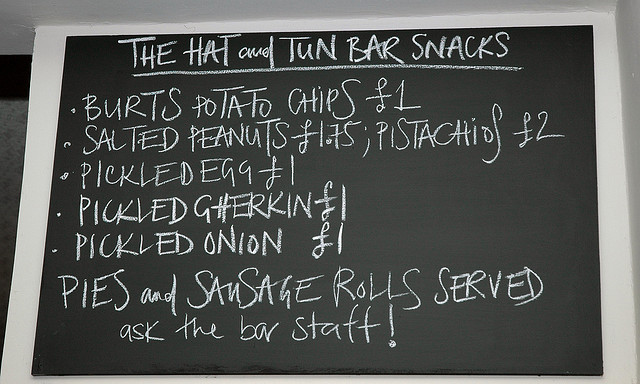 THE HAT and TUN BAR SNACKS
• BURTS POTATO CHIPS £1
• SALTED PEANUTS £1.75; PISTACHIOS £2
• PICKLED EGG £1
• PICKLED GHERKIN £1
• PICKLED ONION £1
PIES and SAUSAGE ROLLS SERVED
ask the bar staff!